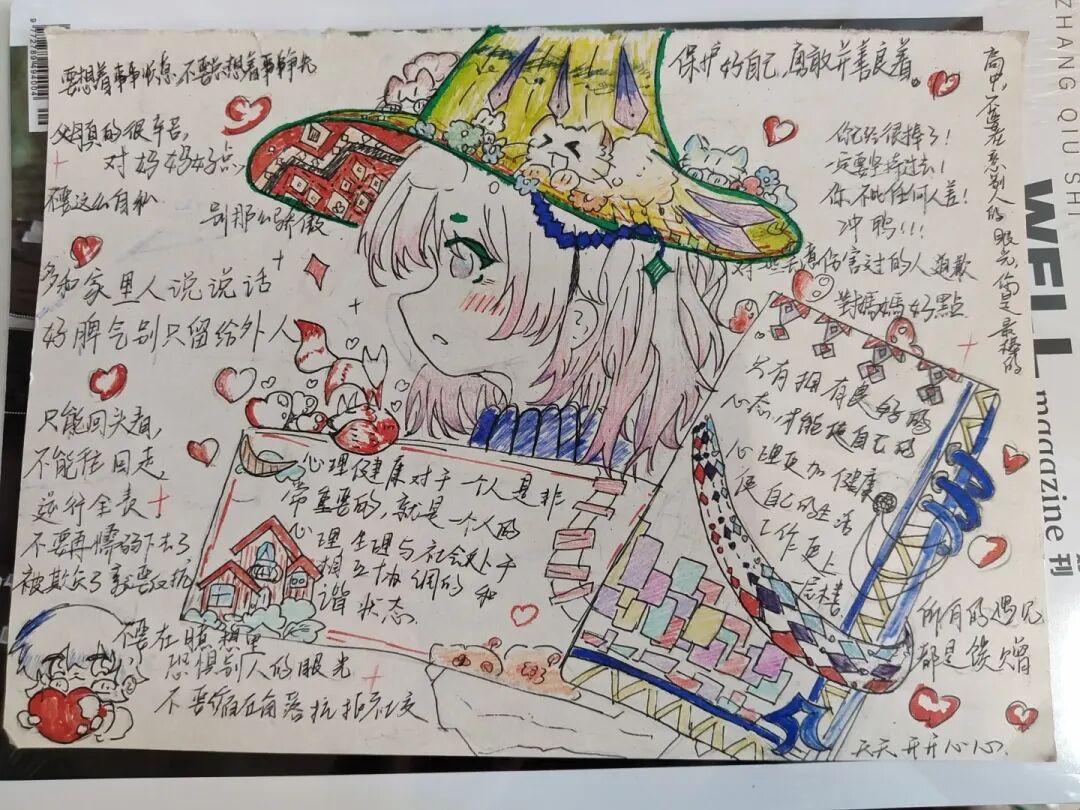 保护好自己,勇敢并善良着。
父母真的很辛苦,
对妈妈好点
不要这么自私
别那么骄傲
多和家里人说说话
好脾气别只留给外人
只能回头看,
不能往回走,
逆行全责
不要再懦弱下去了
被欺负了就要反抗
不要在臆想里
恐惧别人的眼光
不要缩在角落抗拒社交
心理健康对于一个人是非
常重要的,就是一个人的
心理 生理与社会处于
相互协调的和
谐状态
你已经很棒了!
一定要坚持过去!
你不比任何人差!
冲鸭!!!
对一些无意伤害过的人道歉
對媽媽好點
只有拥有良好的
心态,才能使自己的
心理更加健康
使自己的生活
工作更上
一层楼
高中,不要在意别人的眼光,你是最棒的
所有的遇见
都是馈赠
天天开开心心.
9772789494004
ZHANG QIU SHI
WELL magazine 刊